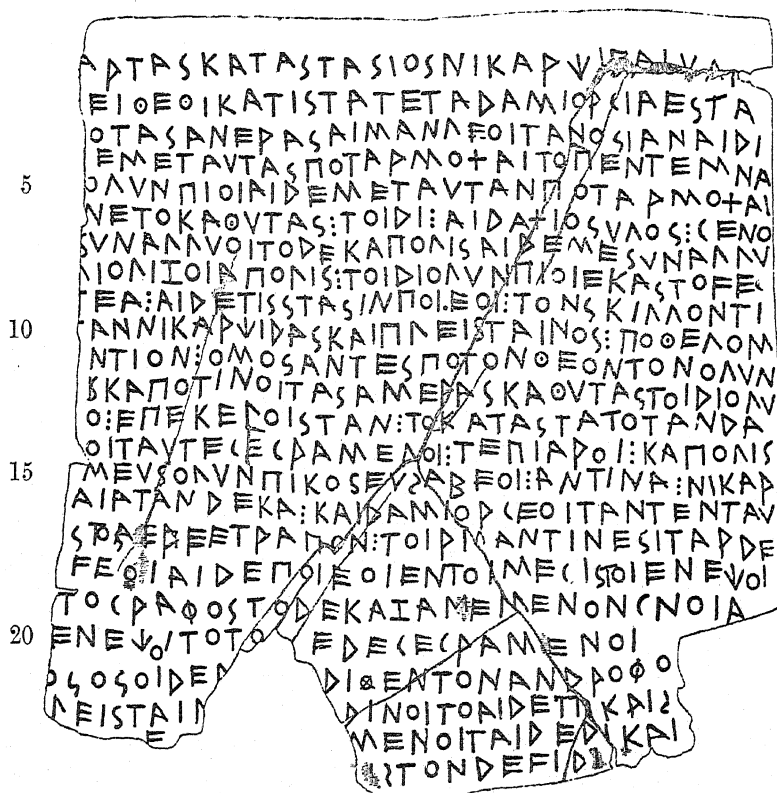 ΑΡΤΑΣΚΑΤΑΣΤΑΣΙΟΣΝΙΚΑΡΨΙΔΑΙ
ΕΙΘΕΟΙΚΑΤΙΣΤΑΤΕΤΑΔΑΜΙΟΡΓΙΑΕΣΤΑ
ΟΤΑΣΑΝΕΡΑΣΑΙΜΑΝΛΕΟΙΤΑΝΟΣΙΑΝΑΙΔΙ
ΕΜΕΤΑΥΤΑΣΠΟΤΑΡΜΟ+ΑΙΤΟΠΕΝΤΕΜΝΑ
5 ΟΛΥΝΠΙΟΙΑΙΔΕΜΕΤΑΥΤΑΝΠΟΤΑΡΜΟ+ΑΙ
ΝΕΤΟΚΑΘΥΤΑΣ:ΤΟΙΔΙ:ΑΙΔΑ+ΙΟΣΥΛΟΣ:ΓΕΝΟ
ΣΥΝΑΛΛΥΟΙΤΟΔΕΚΑΠΟΛΙΣΑΙΔΕΜΕΣΥΝΑΛΛΥ
ΛΙΟΛΙΖΟΙΑΠΟΛΙΣ:ΤΟΙΔΙΟΛΥΝΠΙΟΙΕΚΑΣΤΟϜΕ
ΤΕΑ:ΑΙΔΕΤΙΣΣΤΑΣΙΝΠΟΙΕΟΙ:ΤΟΝΣΚΙΛΛΟΝΤΙ
10 ΤΑΝΝΙΚΑΡΨΙΔΑΣΚΑΙΠΛΕΙΣΤΑΙΝΟΣ:ΠΟΘΕΛΟΜ
ΝΤΙΟΝ:ΟΜΟΣΑΝΤΕΣΠΟΤΟΝΘΕΟΝΤΟΝΟΛΥΝ
ΚΑΠΟΤΙΝΟΙΤΑΣΑΜΕΡΑΣΚΑΘΥΤΑΣΤΟΙΔΙΟΛΥ
Ο:ΕΠΕΚΕΡΟΙΣΤΑΝ:ΤΟΚΑΤΑΣΤΑΤΟΤΑΝΔΑ
ΟΙΤΑΥΤΕΓΕΓΡΑΜΕΝΟΙ:ΤΕΠΙΑΡΟΙ:ΚΑΠΟΛΙΣ
15 ΜΕΥΣΟΛΥΝΠΙΚΟΣΕΥΣΑΒΕΟΙ:ΑΝΤΙΝΑ:ΝΙΚΑΡ
ΑΙΑΤΑΝΔΕΚΑ:ΚΑΙΔΑΜΙΟΡΓΕΟΙΤΑΝΤΕΝΤΑΥ
ΕΡΕΕΤΡΑΠΟΝ:ΤΟΙΡΙΑΝΤΙΝΕΣΙΤΑΡΔΕ
ϜΕΟΙΑΙΔΕΠΟΙΕΟΙΕΝΤΟΙΜΕΓΙΣΤΟΙΕΝΕΨΟΙ
ΤΟΓΡΑΦΟΣΤΟΔΕΚΑΙΖΑΜΕΜΕΝΟΝΓΝΟΙΑ
20 ΕΝΕΨΟΙΤΟΤΟ ΕΔΕΓΕΓΡΑΜΕΝΟΙ
ΟΣΟΣΟΙΔΕΑ ΔΙΘΕΝΤΟΝΑΝΔΡΟΦΟ
ΛΕΙΣΤΑΙΝ ΔΙΝΟΙΤΟΑΙΔΕΤΙ ΚΑΙΣ
Ε ΜΕΝΟΙΤΑΙΔΕΔΙΚΑΙ
ΣΤΟΝΔΕϜΙΔ